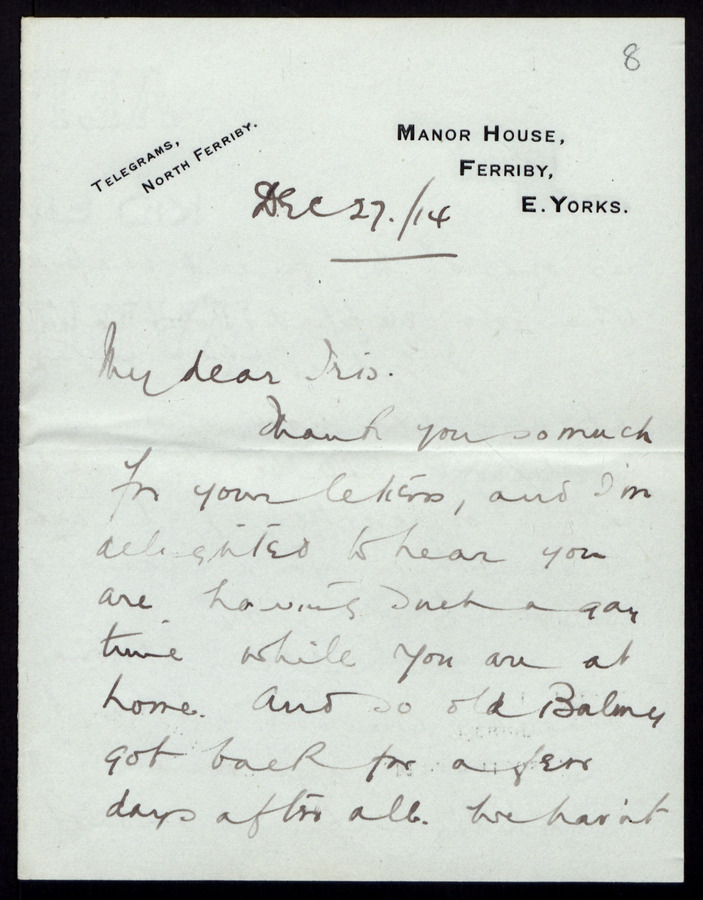 8
TELEGRAMS,
NORTH FERRIBY.
MANOR HOUSE,
FERRIBY,
E. YORKS.
Dec 27./14
My dear Iris.
Thank you so much
for your letters, and I'm
delighted to hear you
are having such a gay
time while you are at
home. And so old Balmey
got back for a few
days after all. We hav'nt